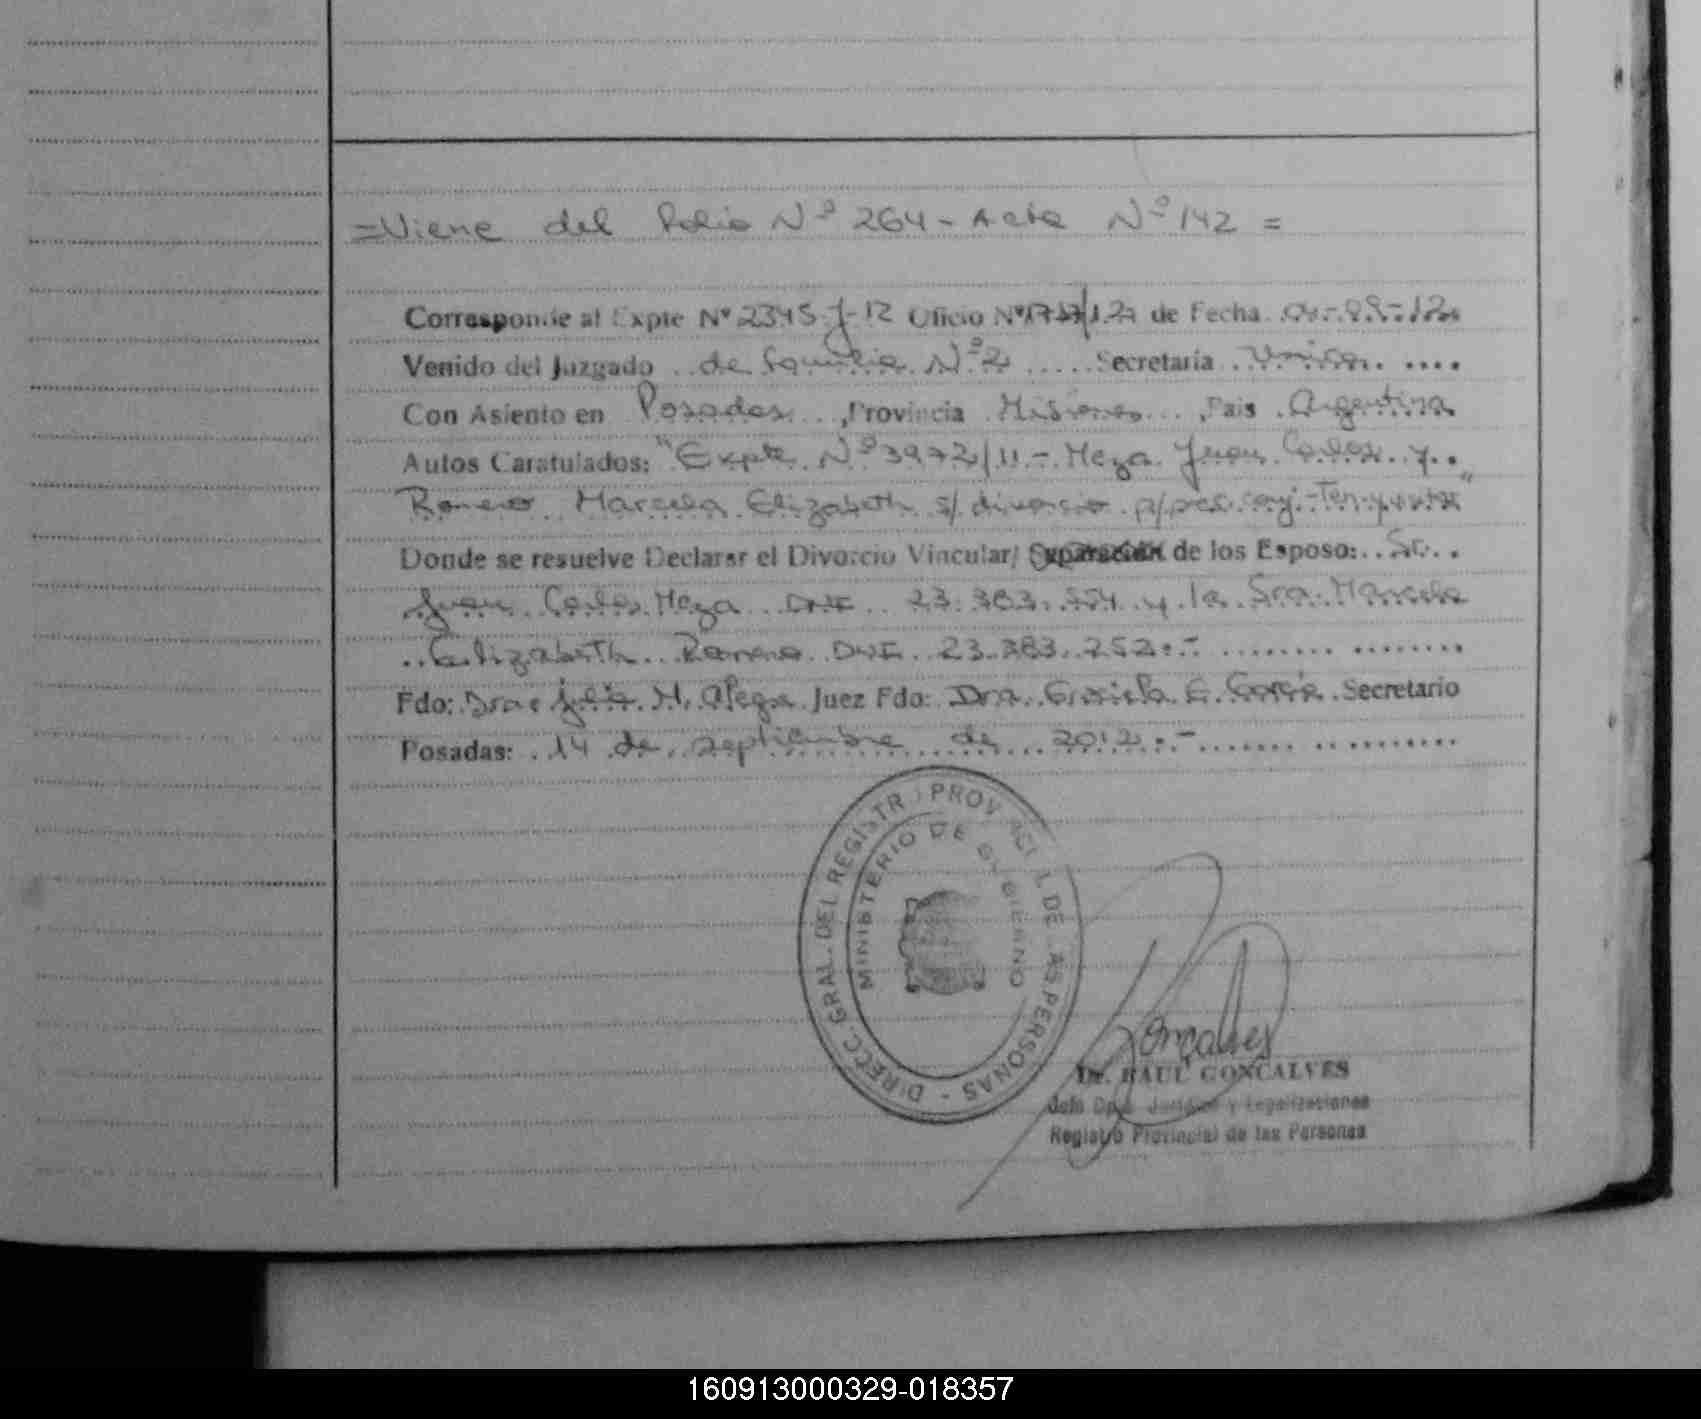 =Viene del folio Nº 264 - Acta Nº 142 =
Corresponde al Expte Nº 2345-J-12 Oficio Nº 1717/12 de Fecha 04-09-12
Venido del Juzgado de familia Nº 2 Secretaría Única
Con Asiento en Posadas, Provincia Misiones, Pais Argentina
Autos Caratulados: "Expte Nº 3972/11 - Meza Juan Carlos y
Romero Marcela Elizabeth s/ divorcio p/pres. conj.
Donde se resuelve Declarar el Divorcio Vincular/ Separación de los Esposo: Sr.
Juan Carlos Meza DNI 23.383.554 y la Sra. Marcela
Elizabeth Romero DNI 23.383.252.-
Fdo: Dra. Julia M. Alegre Juez Fdo: Dra. Graciela E. García Secretario
Posadas: 14 de septiembre de 2012.-
DIRECC. GRAL. DEL REGISTR PROV CI L DE AS PERSONAS -
MINISTERIO DE GOBIERNO
Goncalves
Dr. RAUL GONCALVES
Jefe Dpto. Jurídico y Legalizaciones
Registro Provincial de las Personas
160913000329-018357